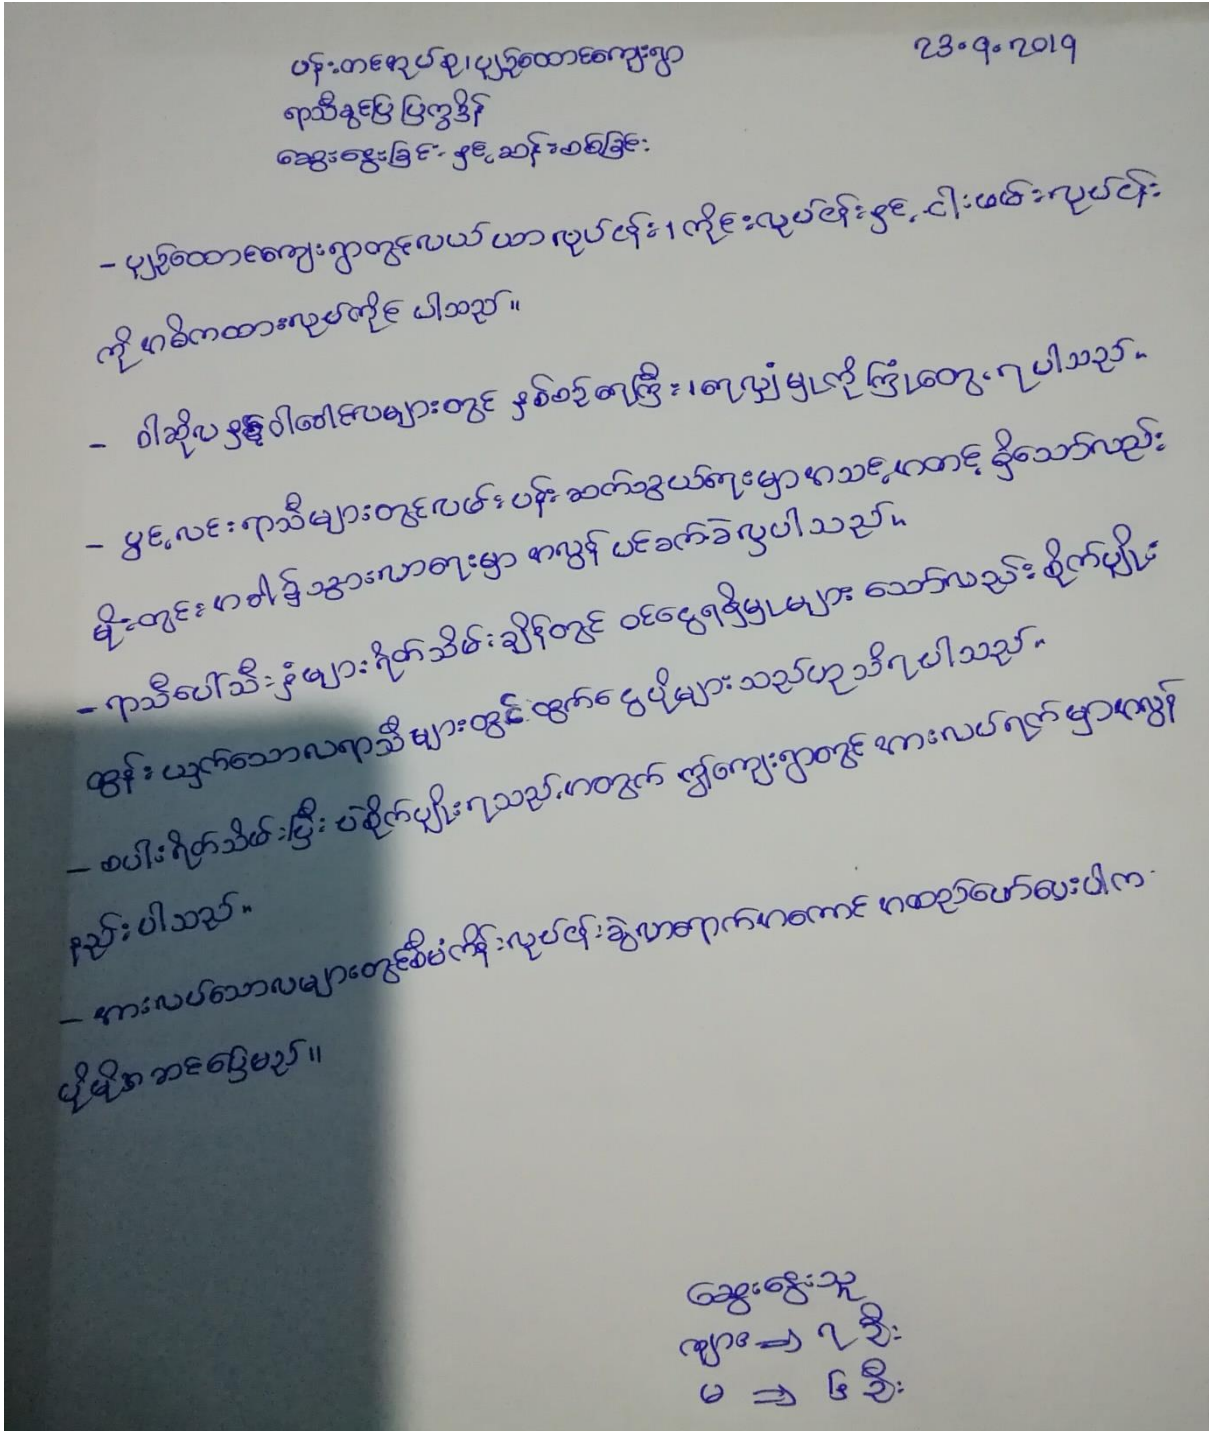 ပန်းတင်အုပ်စု၊ပျဉ်ထောင်ကျေးရွာ
23.9.2019
ရာသီခွင်ပြ ပြက္ခဒိန်
ဆွေးနွေးခြင်း နှင့်ဆန်းစစ်ခြင်း
- ပျဉ်ထောင်ကျေးရွာတွင်လယ်ယာလုပ်ငန်း၊ ကိုင်းလုပ်ငန်းနှင့် ငါးဖမ်းလုပ်ငန်း
ကို အဓိကထားလုပ်ကိုင် ပါသည်။
- ဝါဆိုလ နှင့် ဝါခေါင်လများတွင် နှစ်စဉ် ရေကြီး၊ရေလျှံမှုကို ကြုံတွေ့ရပါသည်။
- ပွင့်လင်းရာသီများတွင်လမ်းပန်းဆက်သွယ်ရေးမှာအသင့်အတင့် ရှိသော်လည်း
မိုးတွင်းအခါ၌သွားလာရေးမှာ အလွန် ပင်ခက်ခဲလှပါသည်။
- ရာသီပေါ်သီးနှံများရိတ်သိမ်းချိန်တွင် ဝင်ငွေရရှိမှုများ သော်လည်း စိုက်ပျိုး
ထွန်းယှက်သောလရာသီများတွင် ထွက်ငွေပိုများသည်ဟုသိရပါသည်။
- စပါးရိတ်သိမ်းပြီး ပဲစိုက်ပျိုးရသည့်အတွက် ဤကျေးရွာတွင် အားလပ်ရက်မှာအလွန်
နည်းပါသည်။
- အားလပ်သောလများတွင်စီမံကိန်းလုပ်ငန်းခွဲလာရောက်အကောင် အထည်ဖော်ပေးပါက
ပိုမိုအဆင်ပြေမည်။
ဆွေးနွေးသူ
ကျား ⇒ ၇ ဦး
မ ⇒ ၆ ဦး